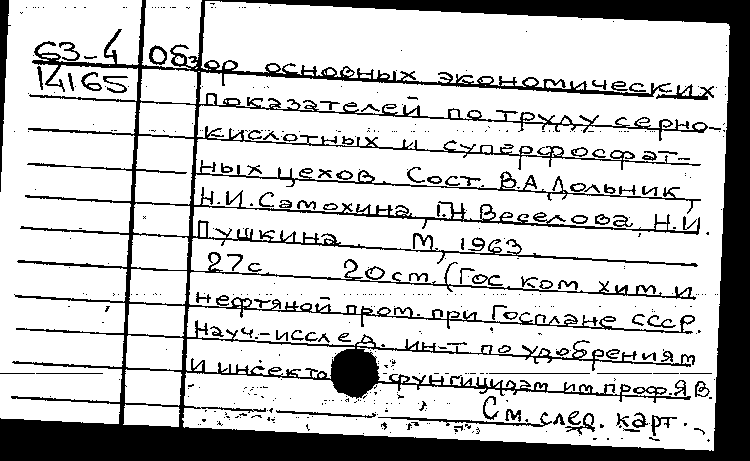 63-4 Обзор основных экономических
14165
показателей по труду серно-
кислотных и суперфосфат-
ных цехов. Сост. В.А.Дольник,
Н.И.Самохина, Г.Н.Веселова, Н.И.
Пушкина. М., 1963.
27с. 20см. (Гос. ком. хим. и
нефтяной пром. при Госплане СССР.
Науч.-исслед. ин-т по удобрениям
и инсекто фунгицидам им.проф.Я.В.
См. след. карт.